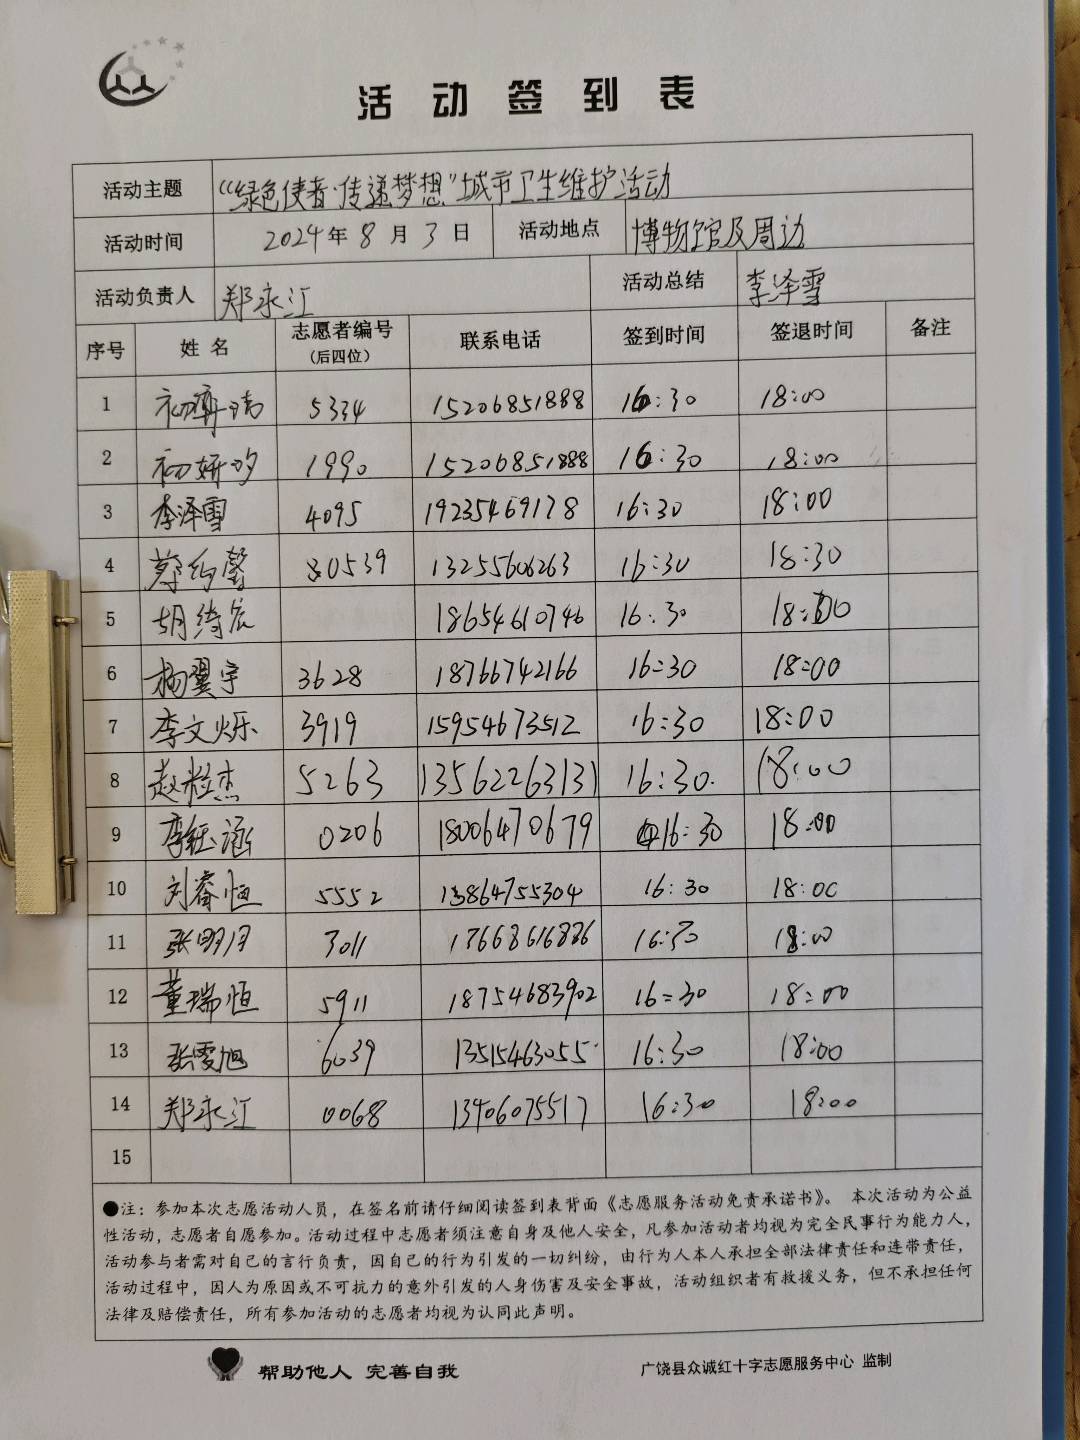 活动签到表
活动主题 “绿色使者·传递梦想”城市卫生维护活动
活动时间 2024年8月3日 活动地点 博物馆及周边
活动负责人 郑永江 活动总结 李泽雪
序号 姓名 志愿者编号(后四位) 联系电话 签到时间 签退时间 备注
1 5334 15206851888 16:30 18:00
2 初妍汐 1990 15206851888 16:30 18:00
3 李泽雪 4095 19235469178 16:30 18:00
4 80539 13255606263 16:30 18:30
5 胡绮宸 18654610746 16:30 18:00
6 杨翼宇 3628 18766742166 16=30 18:00
7 李文烁 3919 15954673512 16:30 18:00
8 赵粒杰 5263 13562263131 16:30. 18:00
9 李钰涵 0206 18006470679 16:30 18:00
10 刘睿恒 5552 13864755304 16:30 18:00
11 张明月 3011 17668616886 16:30 18:00
12 董瑞恒 5911 18754683902 16=30 18:00
13 张雯旭 6039 13515463055 16:30 18:00
14 郑永江 0068 13406075517 16:30 18:00
15
●注：参加本次志愿活动人员，在签名前请仔细阅读签到表背面《志愿服务活动免责承诺书》。 本次活动为公益
性活动，志愿者自愿参加。活动过程中志愿者须注意自身及他人安全，凡参加活动者均视为完全民事行为能力人，
活动参与者需对自己的言行负责，因自己的行为引发的一切纠纷，由行为人本人承担全部法律责任和连带责任，
活动过程中，因人为原因或不可抗力的意外引发的人身伤害及安全事故，活动组织者有救援义务，但不承担任何
法律及赔偿责任，所有参加活动的志愿者均视为认同此声明。
帮助他人 完善自我 广饶县众诚红十字志愿服务中心 监制